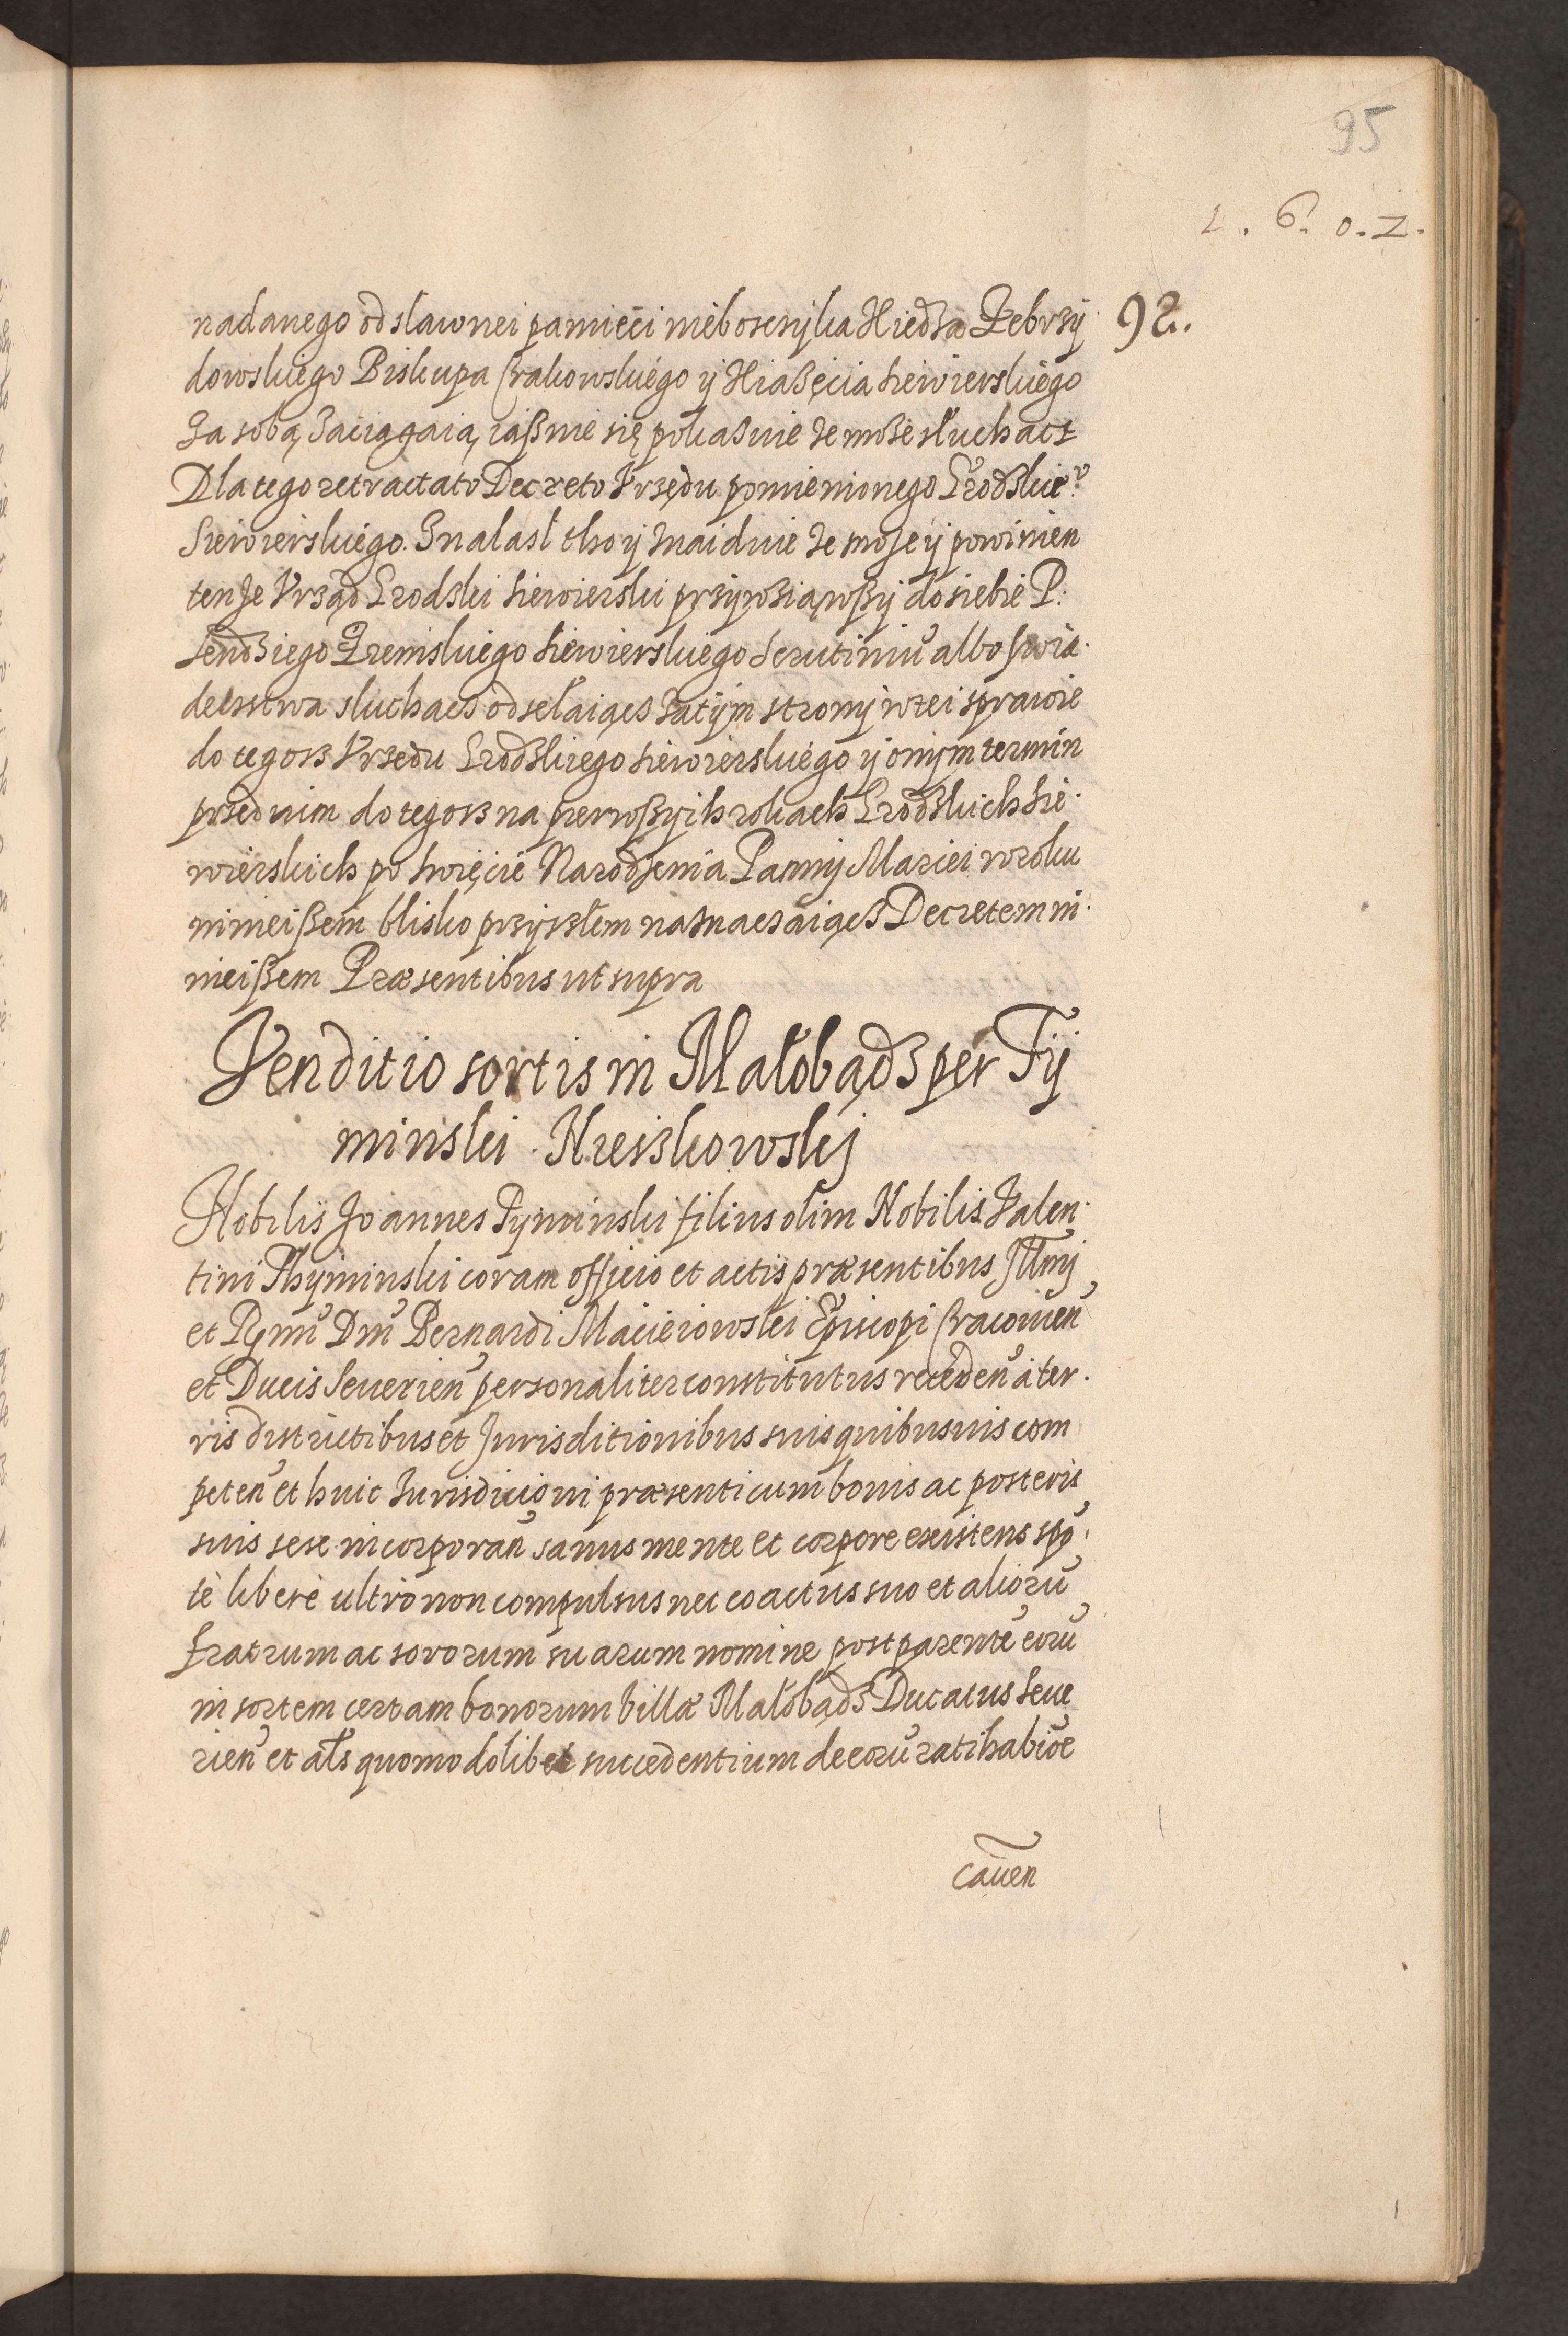 95
1. 6. 0. 2.
nadanego od slawnei pamięci niebosczyka Xiedza Zebrzy 92.
dowskiego Biskupa Crakowskiego y Xiaßęcia Siewierskiego
Za sobą Zaciągaią, iaßnie się pokaznie ze może słuchacz
Dla tego retractato Decreto Vrzędu pomienionego Grodzkie°
Siewierskiego. Znalasł tho y Znaiduie Ze może y powinien
tenże Vrząd Grodzki Siewierski przywziąwßy do siebie P:
Sendziego Ziemskiego Siewierskiego Scrutiniū albo swia
decstwa słuchacz odsełaiącz Zatym strony w tei sprawie
do tegosz Vrzędu Grodzkiego Siewierskiego y onym termin
przed nim do tegosz na pierwßych rokach Grodzkich Sie
wierskich po Swięcie Narodzenia Panny Mariei w roku
ninieißem blisko przyszłem naznaczaiącz Decretem ni
nieißem Præsentibus ut supra
Venditio sortis in Małobądz per Ty
minski Kreiskowskj
Nobilis Joannes Tyminski filius olim Nobilis Valen
tini Thyminski coram officio et actis præsentibus Jllmj
et Rymi Dni Bernardi Macieiowski Episcopi Cracouien
et Ducis Seuerien personaliter constitutus receden a ter
ris districtibus et Jurisditionibus suis quibusuis com
peten et huic Jurisdicioni præsenti cum bonis ac posteris
suis sese incorporan sanus mente et corpore existens spō
te libere ultro non compulsus nec coactus suo et aliorū
fratrum ac sororum suarum nomine post parentē eorū
in sortem certam bonorum villæ Małobądz Ducatus Seue
rien et als quomodolibet succedentium de eorū ratihabiōe
cauen